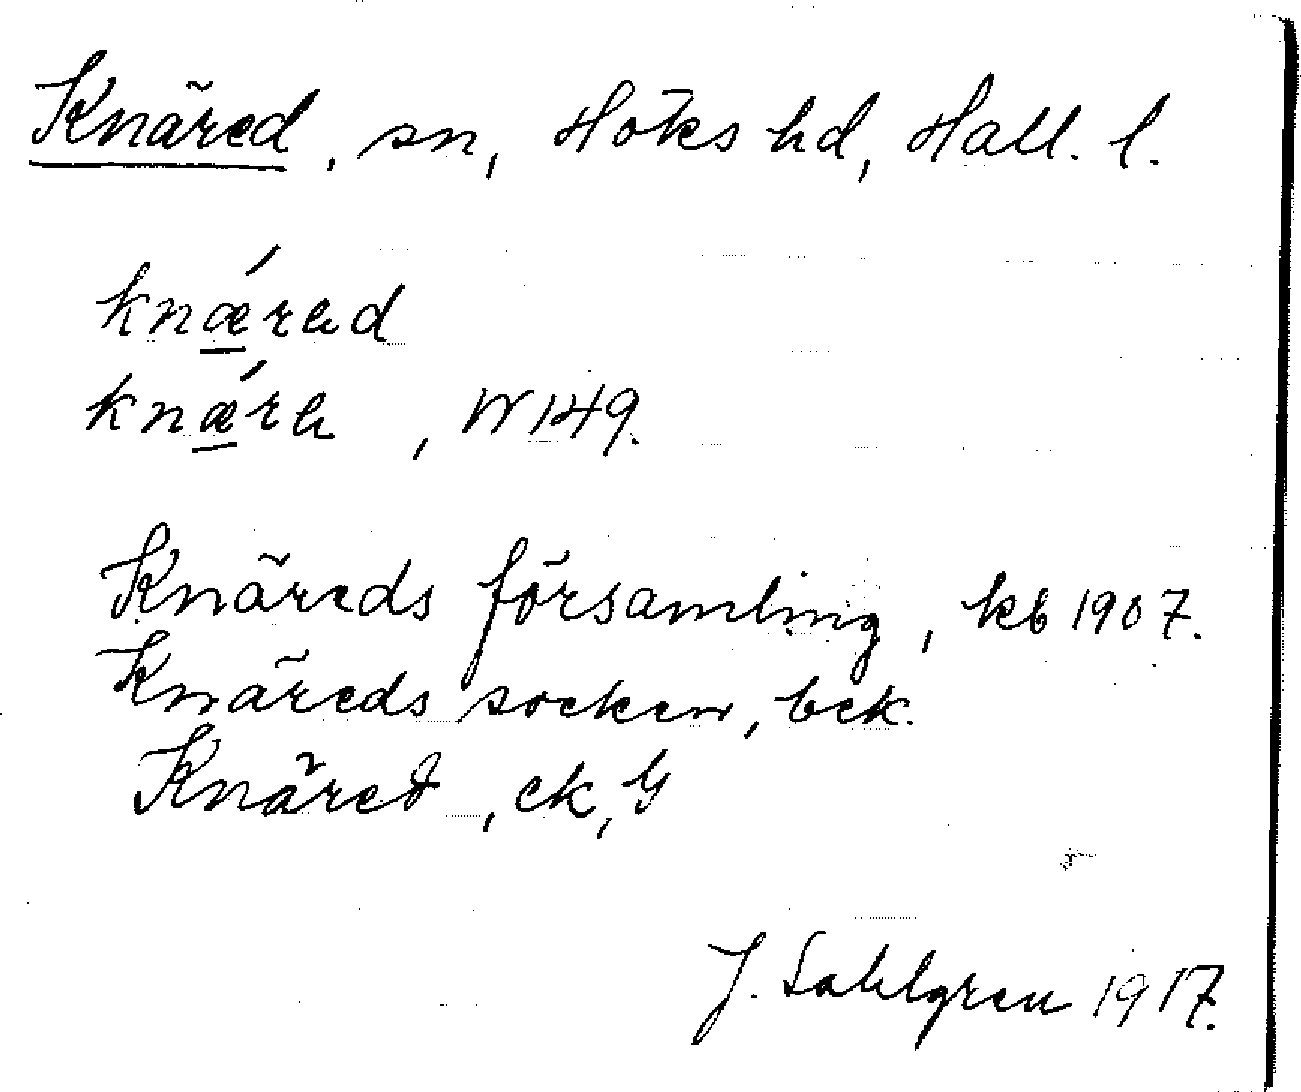 Knäred, sn, Höks hd, Hall. l.
knǽrad
knǽra, W 149.
Knäreds församling, kb 1907.
Knäreds socken, bck.
Knäred, ck, G
J. Sahlgren 1917.